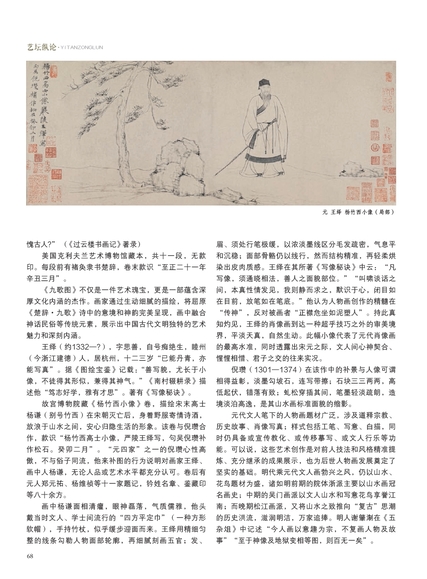 艺坛纵论·YITANZONGLUN
元 王绎 杨竹西小像（局部）
愧古人?”（《过云楼书画记》著录）
美国克利夫兰艺术博物馆藏本，共十一段，无款
印。每段前有褚奂隶书楚辞，卷末款识“至正二十一年
辛丑三月”。
《九歌图》不仅是一件艺术瑰宝，更是一部蕴含深
厚文化内涵的杰作。画家通过生动细腻的描绘，将屈原
《楚辞·九歌》诗中的意境和神韵完美呈现，画中融合
神话民俗等传统元素，展示出中国古代文明独特的艺术
魅力和深刻内涵。
王绎（约1332—?），字思善，自号痴绝生，睦州
（今浙江建德）人，居杭州，十二三岁“已能丹青，亦
能写真”。据《图绘宝鉴》记载：“善写貌，尤长于小
像，不徒得其形似，兼得其神气。”《南村辍耕录》描
述他“笃志好学，雅有才思”。著有《写像秘诀》。
故宫博物院藏《杨竹西小像》卷，描绘宋末高士
杨谦（别号竹西）在宋朝灭亡后，身着野服寄情诗酒，
放浪于山水之间，安心归隐生活的形象。该卷与倪瓒合
作，款识“杨竹西高士小像，严陵王绎写，句吴倪瓒补
作松石。癸卯二月”。“元四家”之一的倪瓒心性高
傲，不与俗子同流，他来补图的行为说明对画家王绎、
画中人杨谦，无论人品或艺术水平都充分认可。卷后有
元人郑元祐、杨维桢等十一家题记，钤姓名章、鉴藏印
等八十余方。
画中杨谦面相清癯，眼神磊落，气质儒雅，他头
戴当时文人、学士间流行的“四方平定巾”（一种方形
软帽），手持竹杖，似乎缓步迎面而来。王绎用精细匀
整的线条勾勒人物面部轮廓，再细腻刻画五官；发、
眉、须处行笔极缓，以浓淡墨线区分毛发疏密，气息平
和沉稳；面部骨骼仍以线行，然而结构精准，再轻柔烘
染出皮肉质感。王绎在其所著《写像秘诀》中云：“凡
写像，须通晓相法，善人之面貌部位。”“叫啸谈话之
间，本真性情发见，我则静而求之，默识于心，闭目如
在目前，放笔如在笔底。”他认为人物画创作的精髓在
“传神”，反对被画者“正襟危坐如泥塑人”。持此真
知灼见，王绎的肖像画到达一种超乎技巧之外的审美境
界，平淡天真，自然生动。此幅小像代表了元代肖像画
的最高水准，同时透露出宋元之际，文人间心神契合、
惺惺相惜、君子之交的往来实况。
倪瓒（1301—1374）在该作中的补景与人像可谓
相得益彰，淡墨勾坡石，连写带擦；石块三三两两，高
低起伏，错落有致；虬松穿插其间，笔墨轻淡疏朗，造
境淡泊高逸，是其山水画标准面貌的缩影。
元代文人笔下的人物画题材广泛，涉及道释宗教、
历史故事、肖像写真；样式包括工笔、写意、白描，同
时仍具备或宣传教化、或传移摹写、或文人行乐等功
能。可以说，这些艺术创作是对前人技法和风格精准提
炼、充分继承的成果展示，也为后世人物画发展奠定了
坚实的基础。明代秉元代文人画勃兴之风，仍以山水、
花鸟题材为盛，诸如明前期的院体浙派主要以山水画冠
名画史；中期的吴门画派以文人山水和写意花鸟享誉江
南；而晚期松江画派，又将山水之致推向“复古”思潮
的历史洪流，滥润明洁，万家追捧。明人谢肇淛在《五
杂俎》中记述“今人画以意趣为宗，不复画人物及故
事”“至于神像及地狱变相等图，则百无一矣”。
68